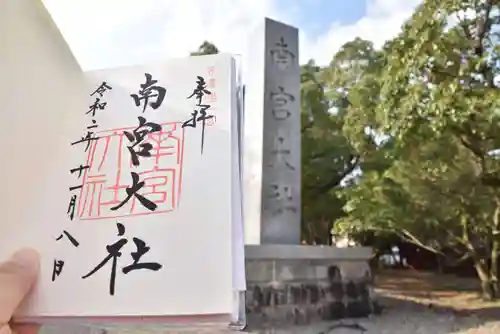 奉拝
南宮大社
令和二年十一月八日
南宮大社
南宮大社